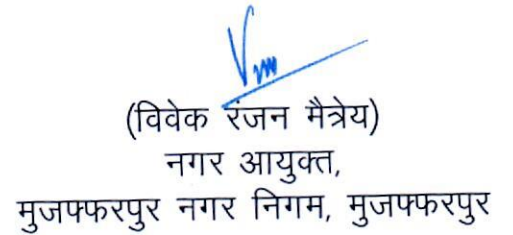 (विवेक रंजन मैत्रेय)
नगर आयुक्त,
मुजफ्फरपुर नगर निगम, मुजफ्फरपुर